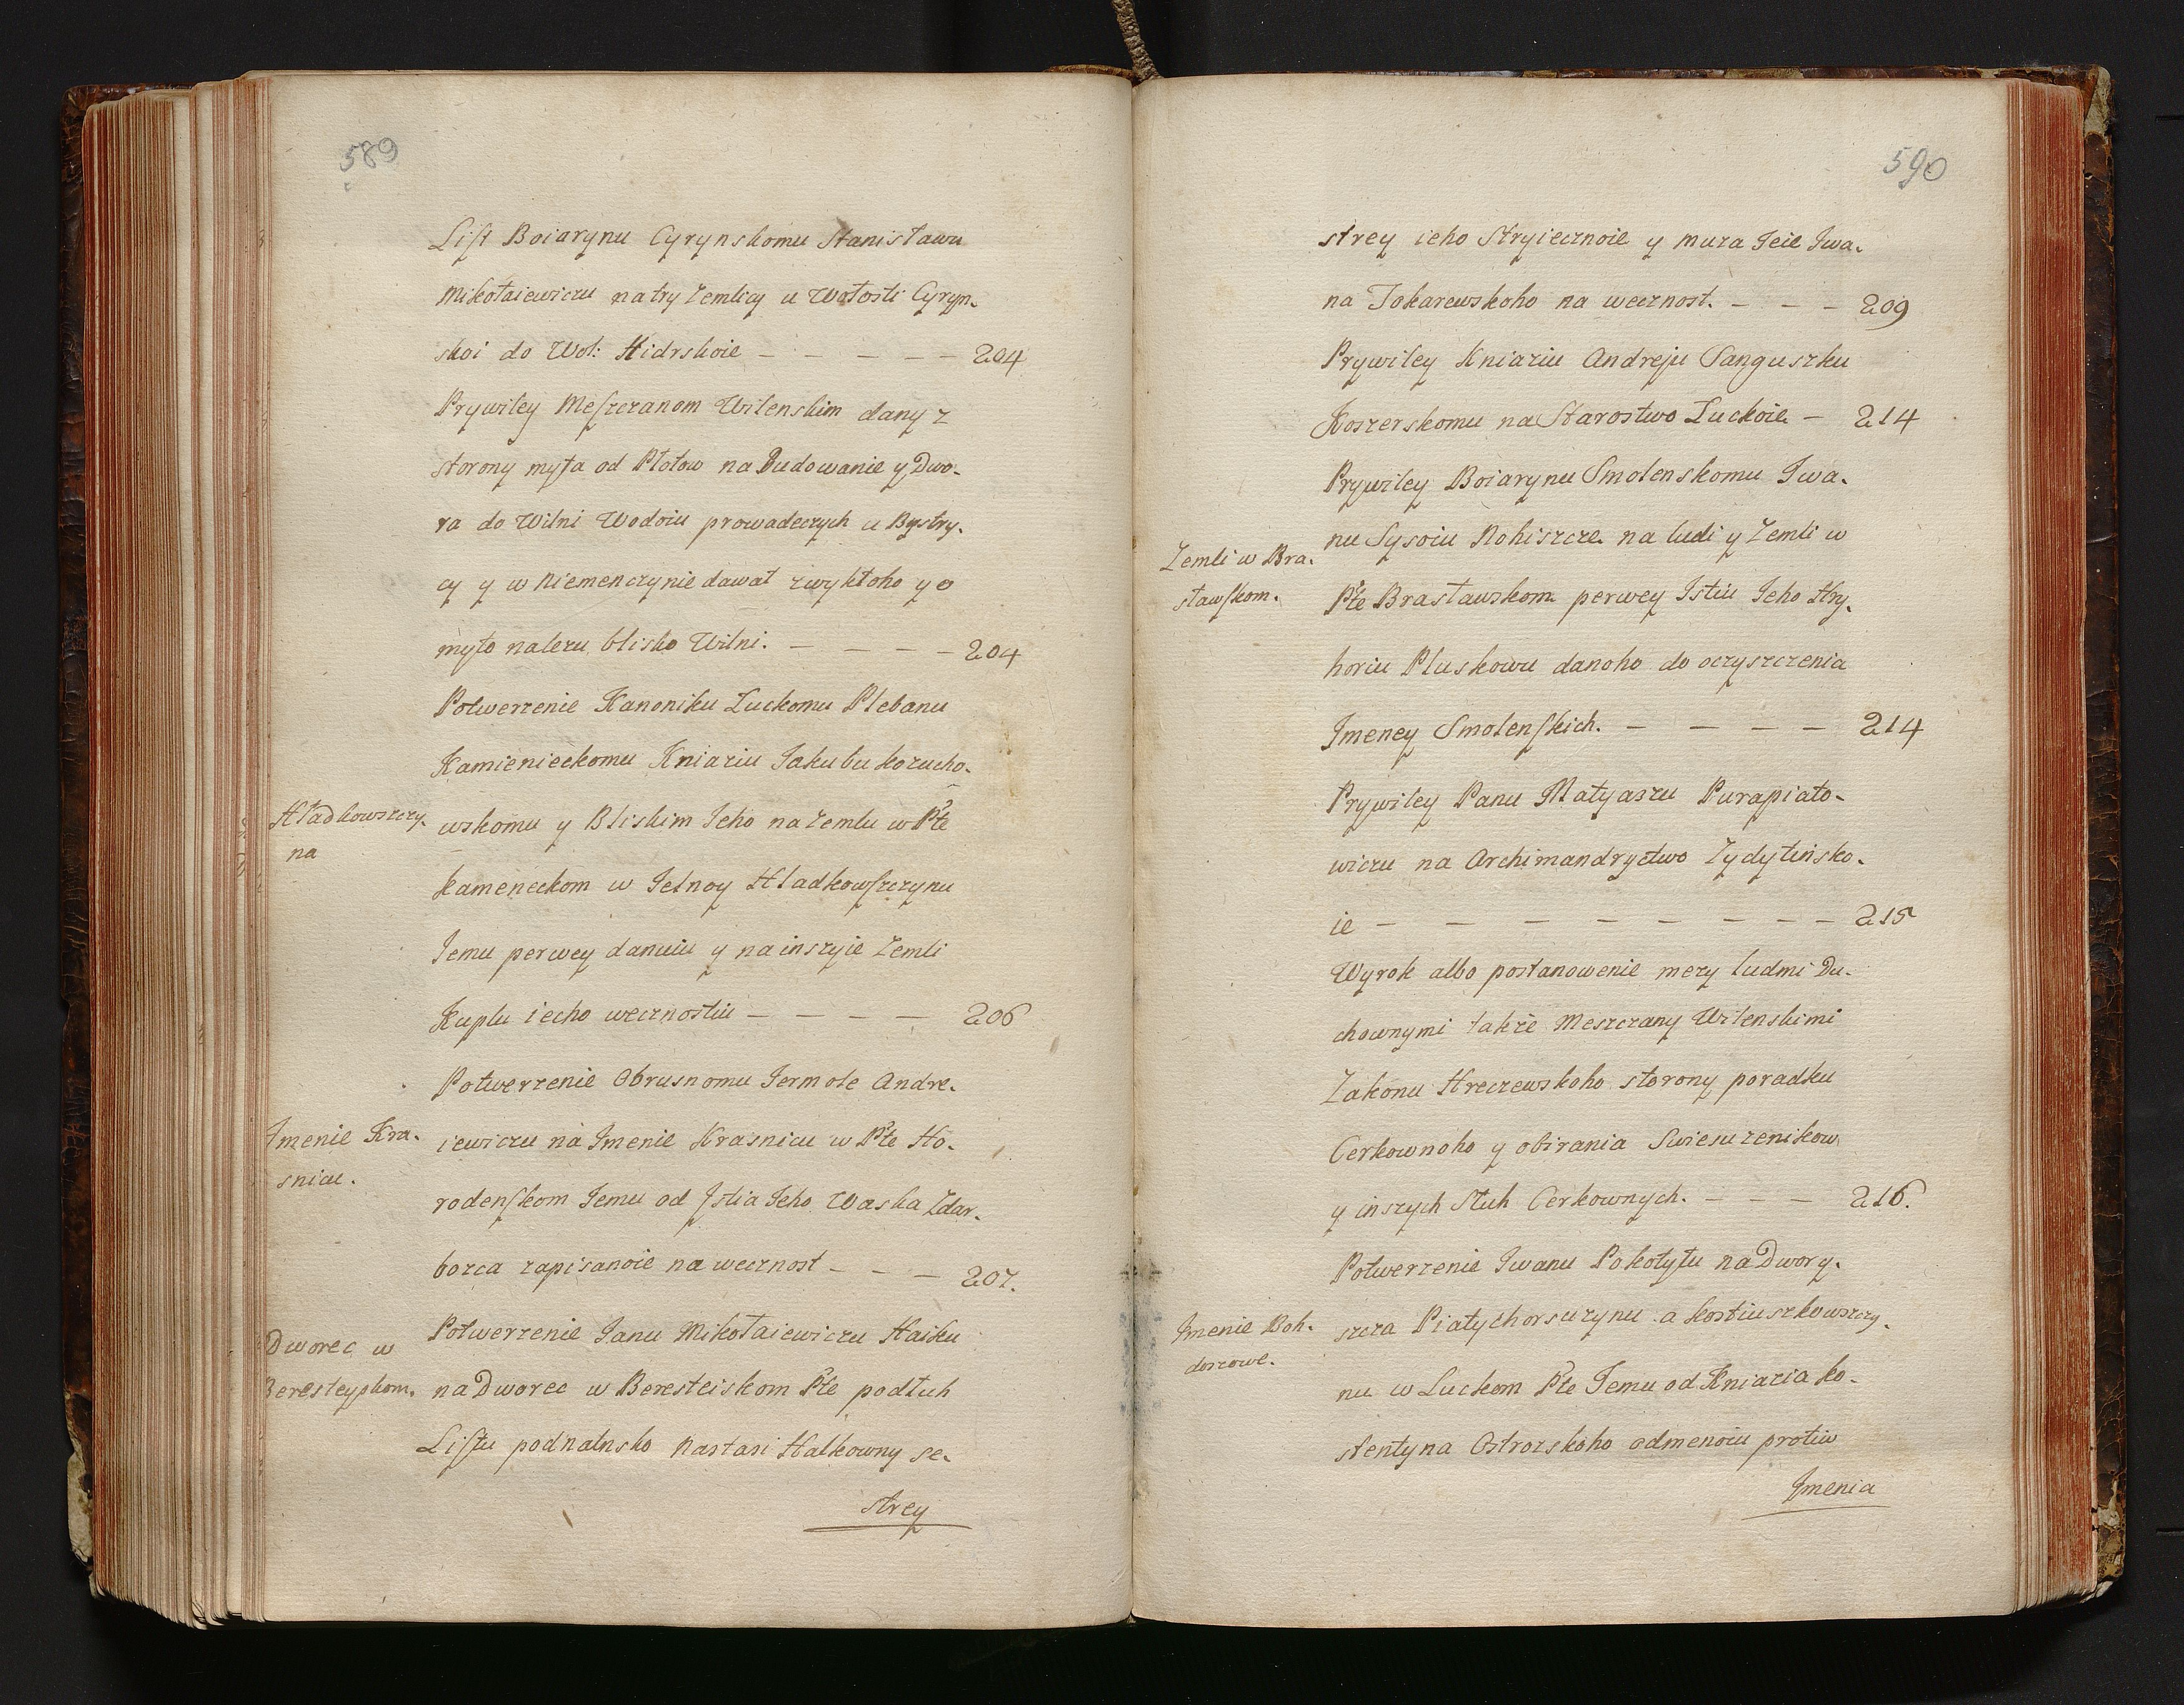 589
List Boiarynu Cyrynskomu Stanisławu
Mikołaiewiczu na try Zemlicy u Wołosti Cyryn-
skoi do Wol: Hidrskoie — — — — — 204
Prywiley Meszczanom Wilenskim dany z
storony myta od Płotow na Budowanie y Dwo-
ra do Wilni Wodoiu prowadeczych u Bystry-
cy y w Niemenczynie dawat zwykłoho y o
myto nalezu blisko Wilni. — — — — 204
Potwerzenie Kanoniku Luckomu Plebanu
Kamienieckomu Kniaziu Jakubu kozucho-
Hładkowszczy-
na
wskomu y Bliskim Jeho na Zemlu w Pte
kameneckom w Jelnoy Hladkowszczynu
Jemu perwey danuiu y na inszyie Zemli
Kuplu iecho wecznostiu — — — — 206
Potwerzenie Obrusnomu Jermole Andre-
Jmenie Kra-
snicu.
iewiczu na Jmenie Krasnicu w Pte Ho-
rodenskom Jemu od Jstia Jeho Waska Zdar-
bozca zapisanoie na wecznost — — — 207.
Potwerzenie Janu Mikołaiewiczu Haiku
Dworec w
Beresteyskom.
na Dworec w Beresteiskom Pte podłuh
Listu podnalnsko Nastasi Halkowny se-
strey
590
strey ieho Stryiecznoie y muza Jeie Jwa-
na Tokarewskoho na wecznost. — — — 209
Prywiley Kniaziu Andreju Sanguszku
Koszerskomu na Starostwo Luckoie — 214
Prywiley Boiarynu Smolenskomu Jwa-
Zemli w Bra-
sławskom.
nu Sysoiu Nohiszcze na ludi y Zemli w
Pte Brasławskom perwey Jstiu Jeho Hry-
horiu Pluskowu danoho do oczyszczenia
Jmeney Smolenskich. — — — — 214
Prywiley Panu Matyaszu Purapiato-
wiczu na Archimandryctwo Zydytinsko-
ie — — — — — — — — 215
Wyrok albo postanowenie mezy ludmi Du-
chownymi takze Meszczany Wilenskimi
Zakonu Hreczewskoho storony poradku
Cerkownoho y obirania Swieszczenikow
y inszych Sluh Cerkownych. — — — 216.
Potwerzenie Jwanu Pokotyłu na Dwory-
Jmenie Boh-
doszowe.
szcza Piatychorszczynu a kostiuszkowszczy-
nu w Luckom Pte Jemu od Kniazia ko-
stentyna Ostrozskoho odmenoiu protiw
Jmenia